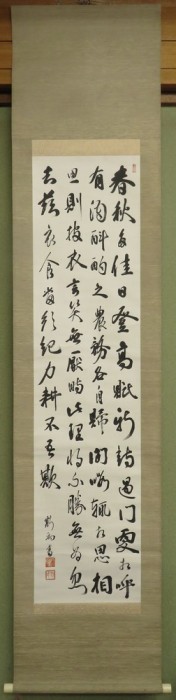 春秋多佳日登高賦新詩過門更相呼
有酒斟酌之農務各自歸閑暇輒相思相
思則披衣言笑無厭時此理將不勝無為忽
去茲衣食當須紀力耕不吾欺